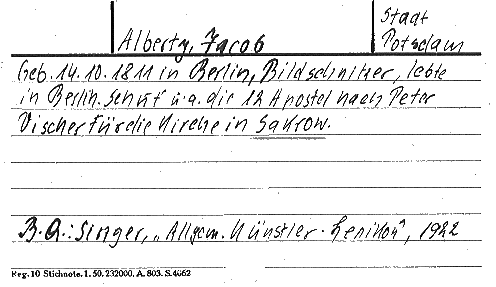 Stadt
Alberty, Jacob Potsdam
Geb. 14.10.1811 in Berlin, Bildschnitzer, lebte
in Berlin. Schuf u.a. die 12 Apostel nach Peter
Vischer für die Kirche in Sakrow.
B.A.: Singer, „Allgem. Künstler-Lexikon", 1922
Reg. 10 Stichnote. 1. 50. 232000. A. 803. S. 4062